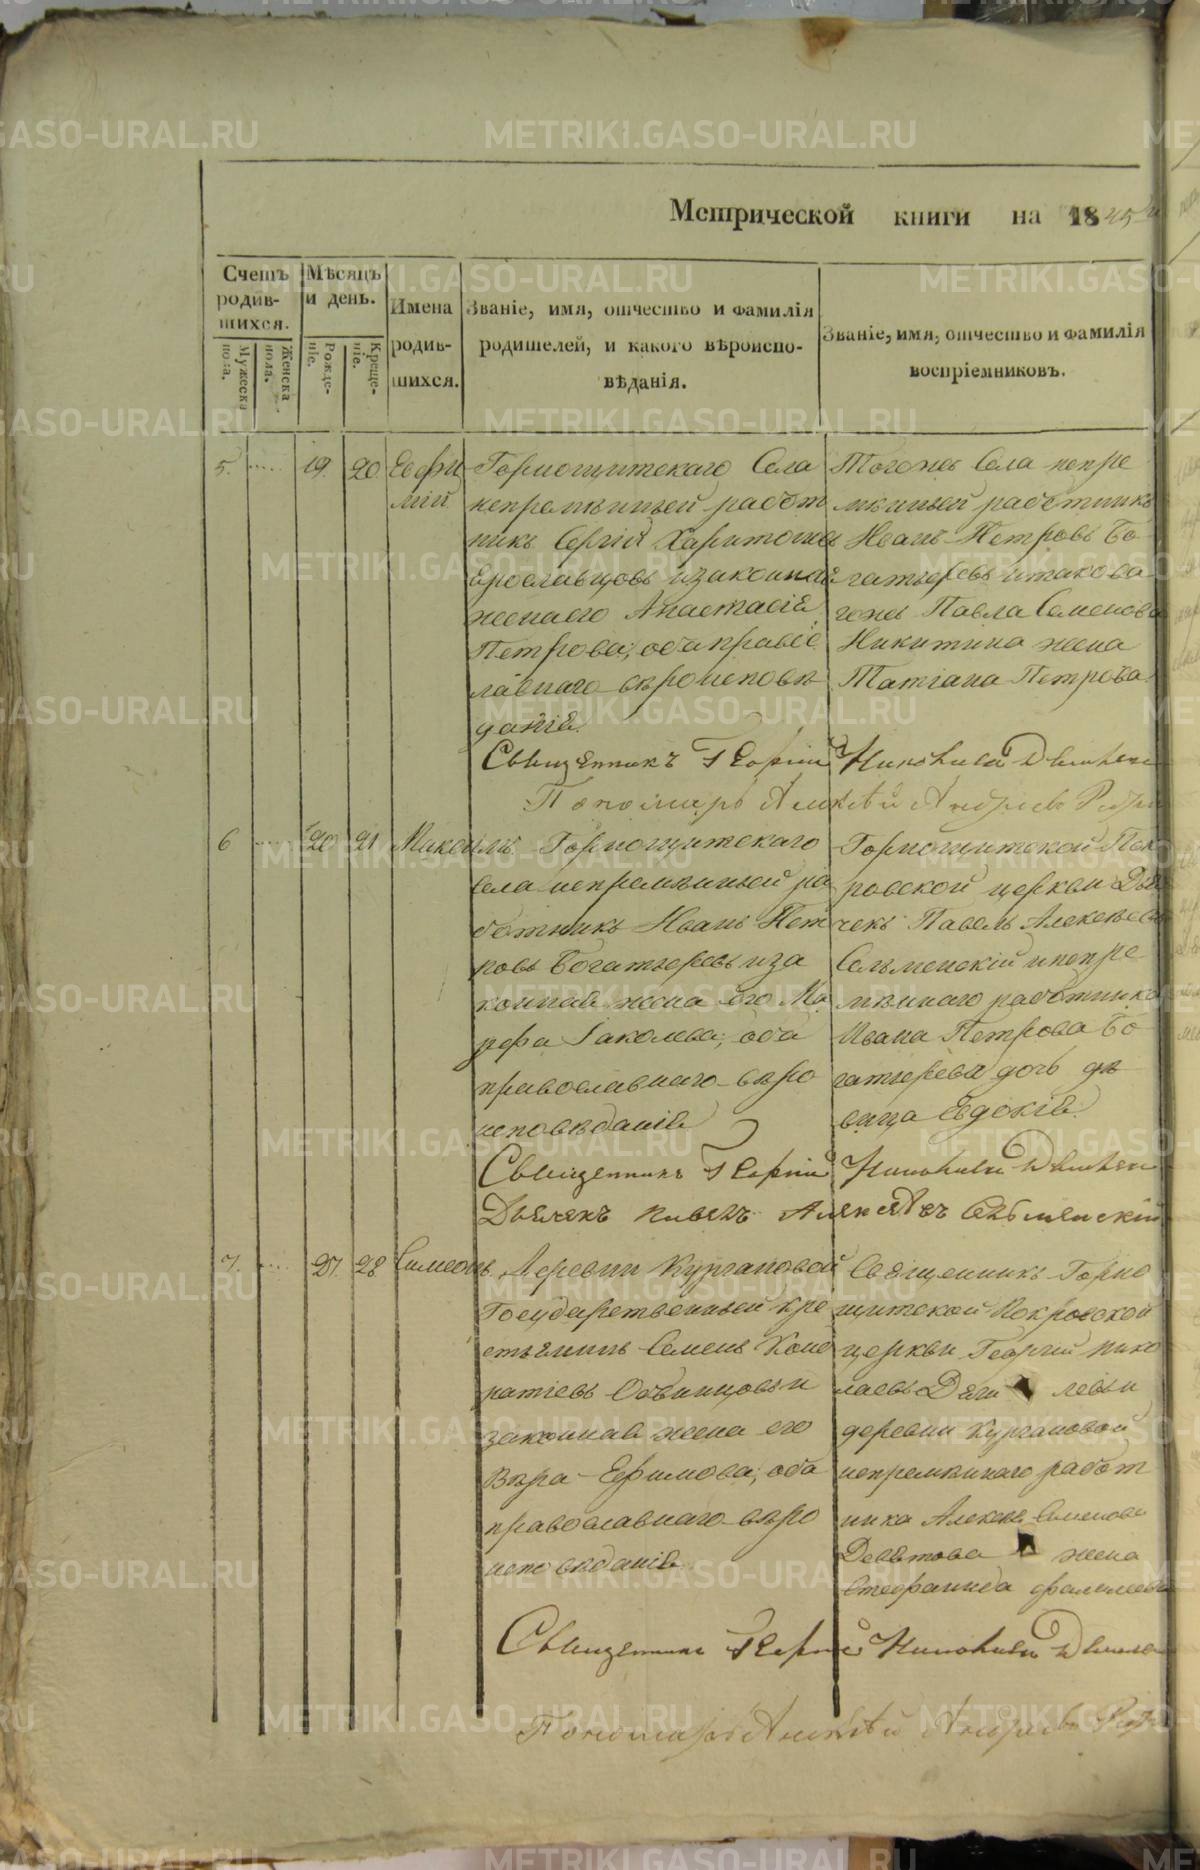 Метрической книги на 1845
Счетъ родив-шихся.
Мужеска пола.
Женска пола.
Мѣсяцъ и день.
Рожде-ніе.
Креще-ніе.
Имена родив-шихся.
Званіе, имя, отчество и фамилія
родителей, и какого вѣроиспо-
вѣданія.
Званіе, имя, отчество и фамилія
воспріемниковъ.
5. 19. 20. Евфи
мій
Горнощитскаго Села
непремѣнный работ
никъ Сергій Харитоновъ
Ерославцовъ и законная
жена его Анастасія
Петрова; оба правос
лавнаго вѣроисповѣ
данія.
Тогоже Села непре
мѣнный работникъ
Иванъ Петровъ Бо
гатыревъ и такова
гожъ Павла Семенова
Никитина жена
Татіана Петрова
Священникъ Георгій Николаевъ
Пономарь Алексѣй Андреевъ
6 20. 21. Максимъ.
Горнощитскаго
села непремѣнный ра
ботникъ Иванъ Пет
ровъ Богатыревъ и за
конная жена его Ма
рфа Іаковлева; оба
православнаго вѣро
исповѣданія
Горнощитской Пок
ровской церкви Дья
чекъ Павелъ Алексѣевъ
Сельменскій и непре
мѣннаго работника
Ивана Петрова Бо
гатырева дочь дѣ
вица Евдокія.
Священникъ Георгій Николаевъ
Дьячекъ Павелъ Алексѣевъ Сельменскій
7. 27. 28 Симеонъ.
Деревни Кургановой
Государственный кре
стьянинъ Семенъ Конд
ратіевъ Овчинцовъ и
законная жена его
Вѣра Ефимова; оба
православнаго вѣро
исповѣданія.
Священникъ Горно
щитской Покровской
церкви Георгій Нико
лаевъ Дяги левъ и
деревни Кургановой
непремѣннаго работ
ника Алексѣя Семенова
Девятова жена
Стефанида
Священникъ Георгій Николаевъ
Пономарь Алексѣй Андреевъ
METRIKI.GASO-URAL.RU